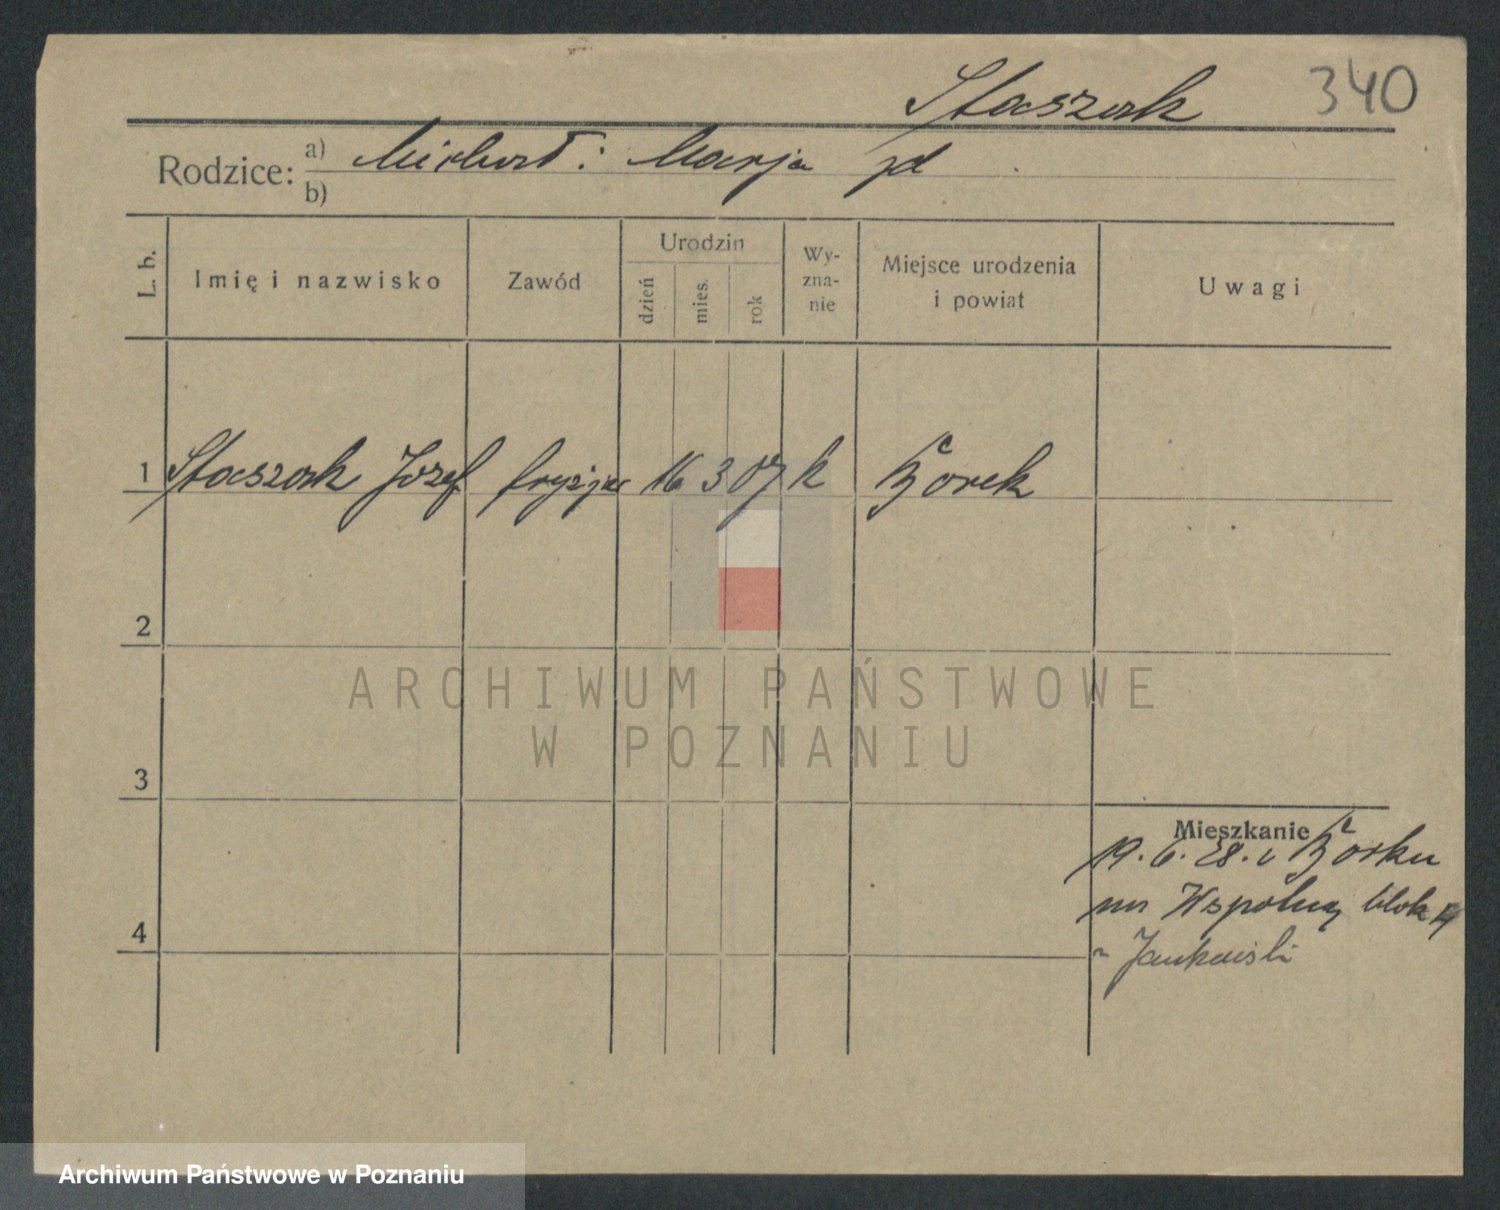 Staszak 340
Rodzice: a) Michał i Marja zd
b)
L. b. Imię i nazwisko Zawód Urodzin dzień mies. rok Wy-zna-nie Miejsce urodzenia i powiat Uwagi
1 Staszak Józef fryzjer 16 3 07 k Borek
2
ARCHIWUM PAŃSTWOWE
W POZNANIU
3
Mieszkanie
19. 6. 28. Borku
Wspólna blok
4
Jankowski
Archiwum Państwowe w Poznaniu